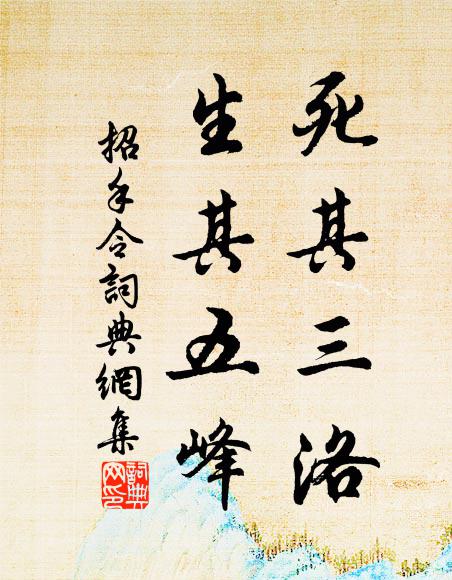 死其三洛
生其五峰
招手令詞典網集
詞典網印